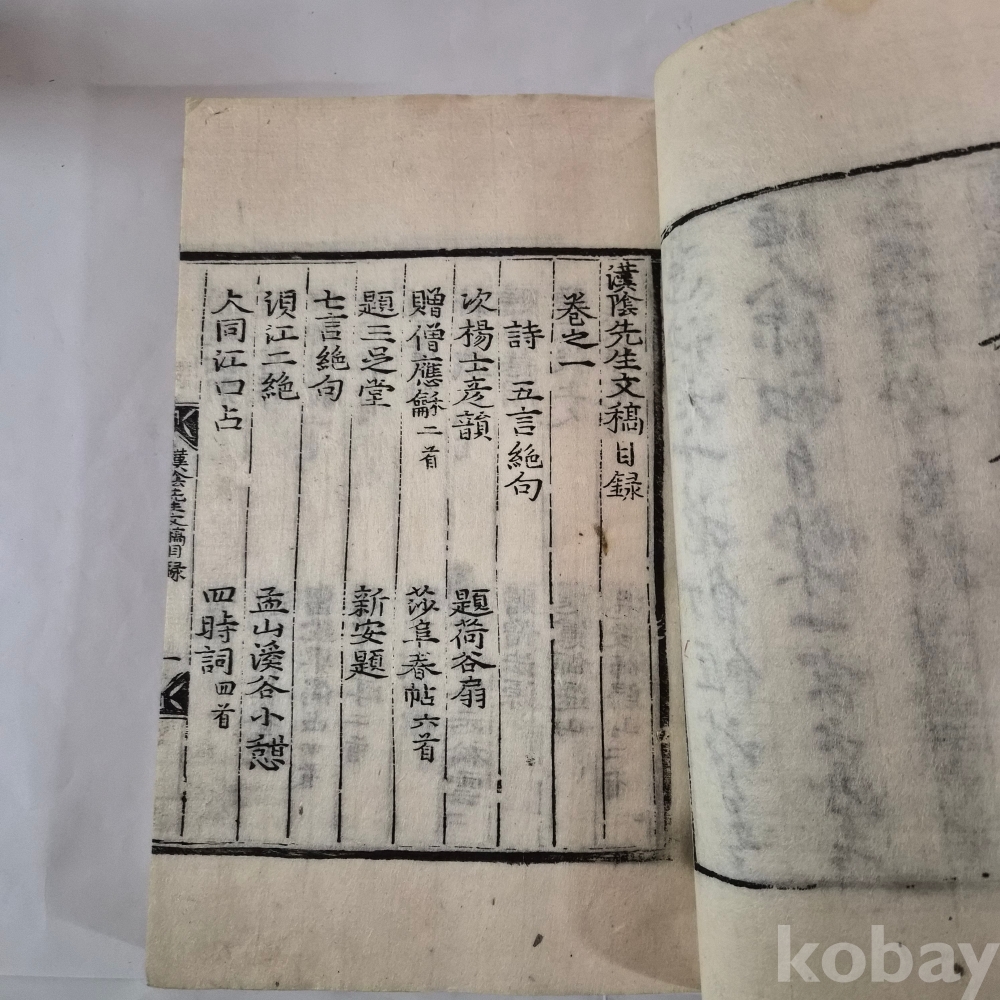 漢陰先生文稿目録
卷之一
詩 五言絶句
次楊士彦韻 題荷谷扇
贈僧應龢二首 莎阜春帖六首
題三足堂 新安題
七言絶句
浿江二絶 孟山溪谷小憇
大同江口占 四時詞四首
漢陰先生文稿目録 一
kobay